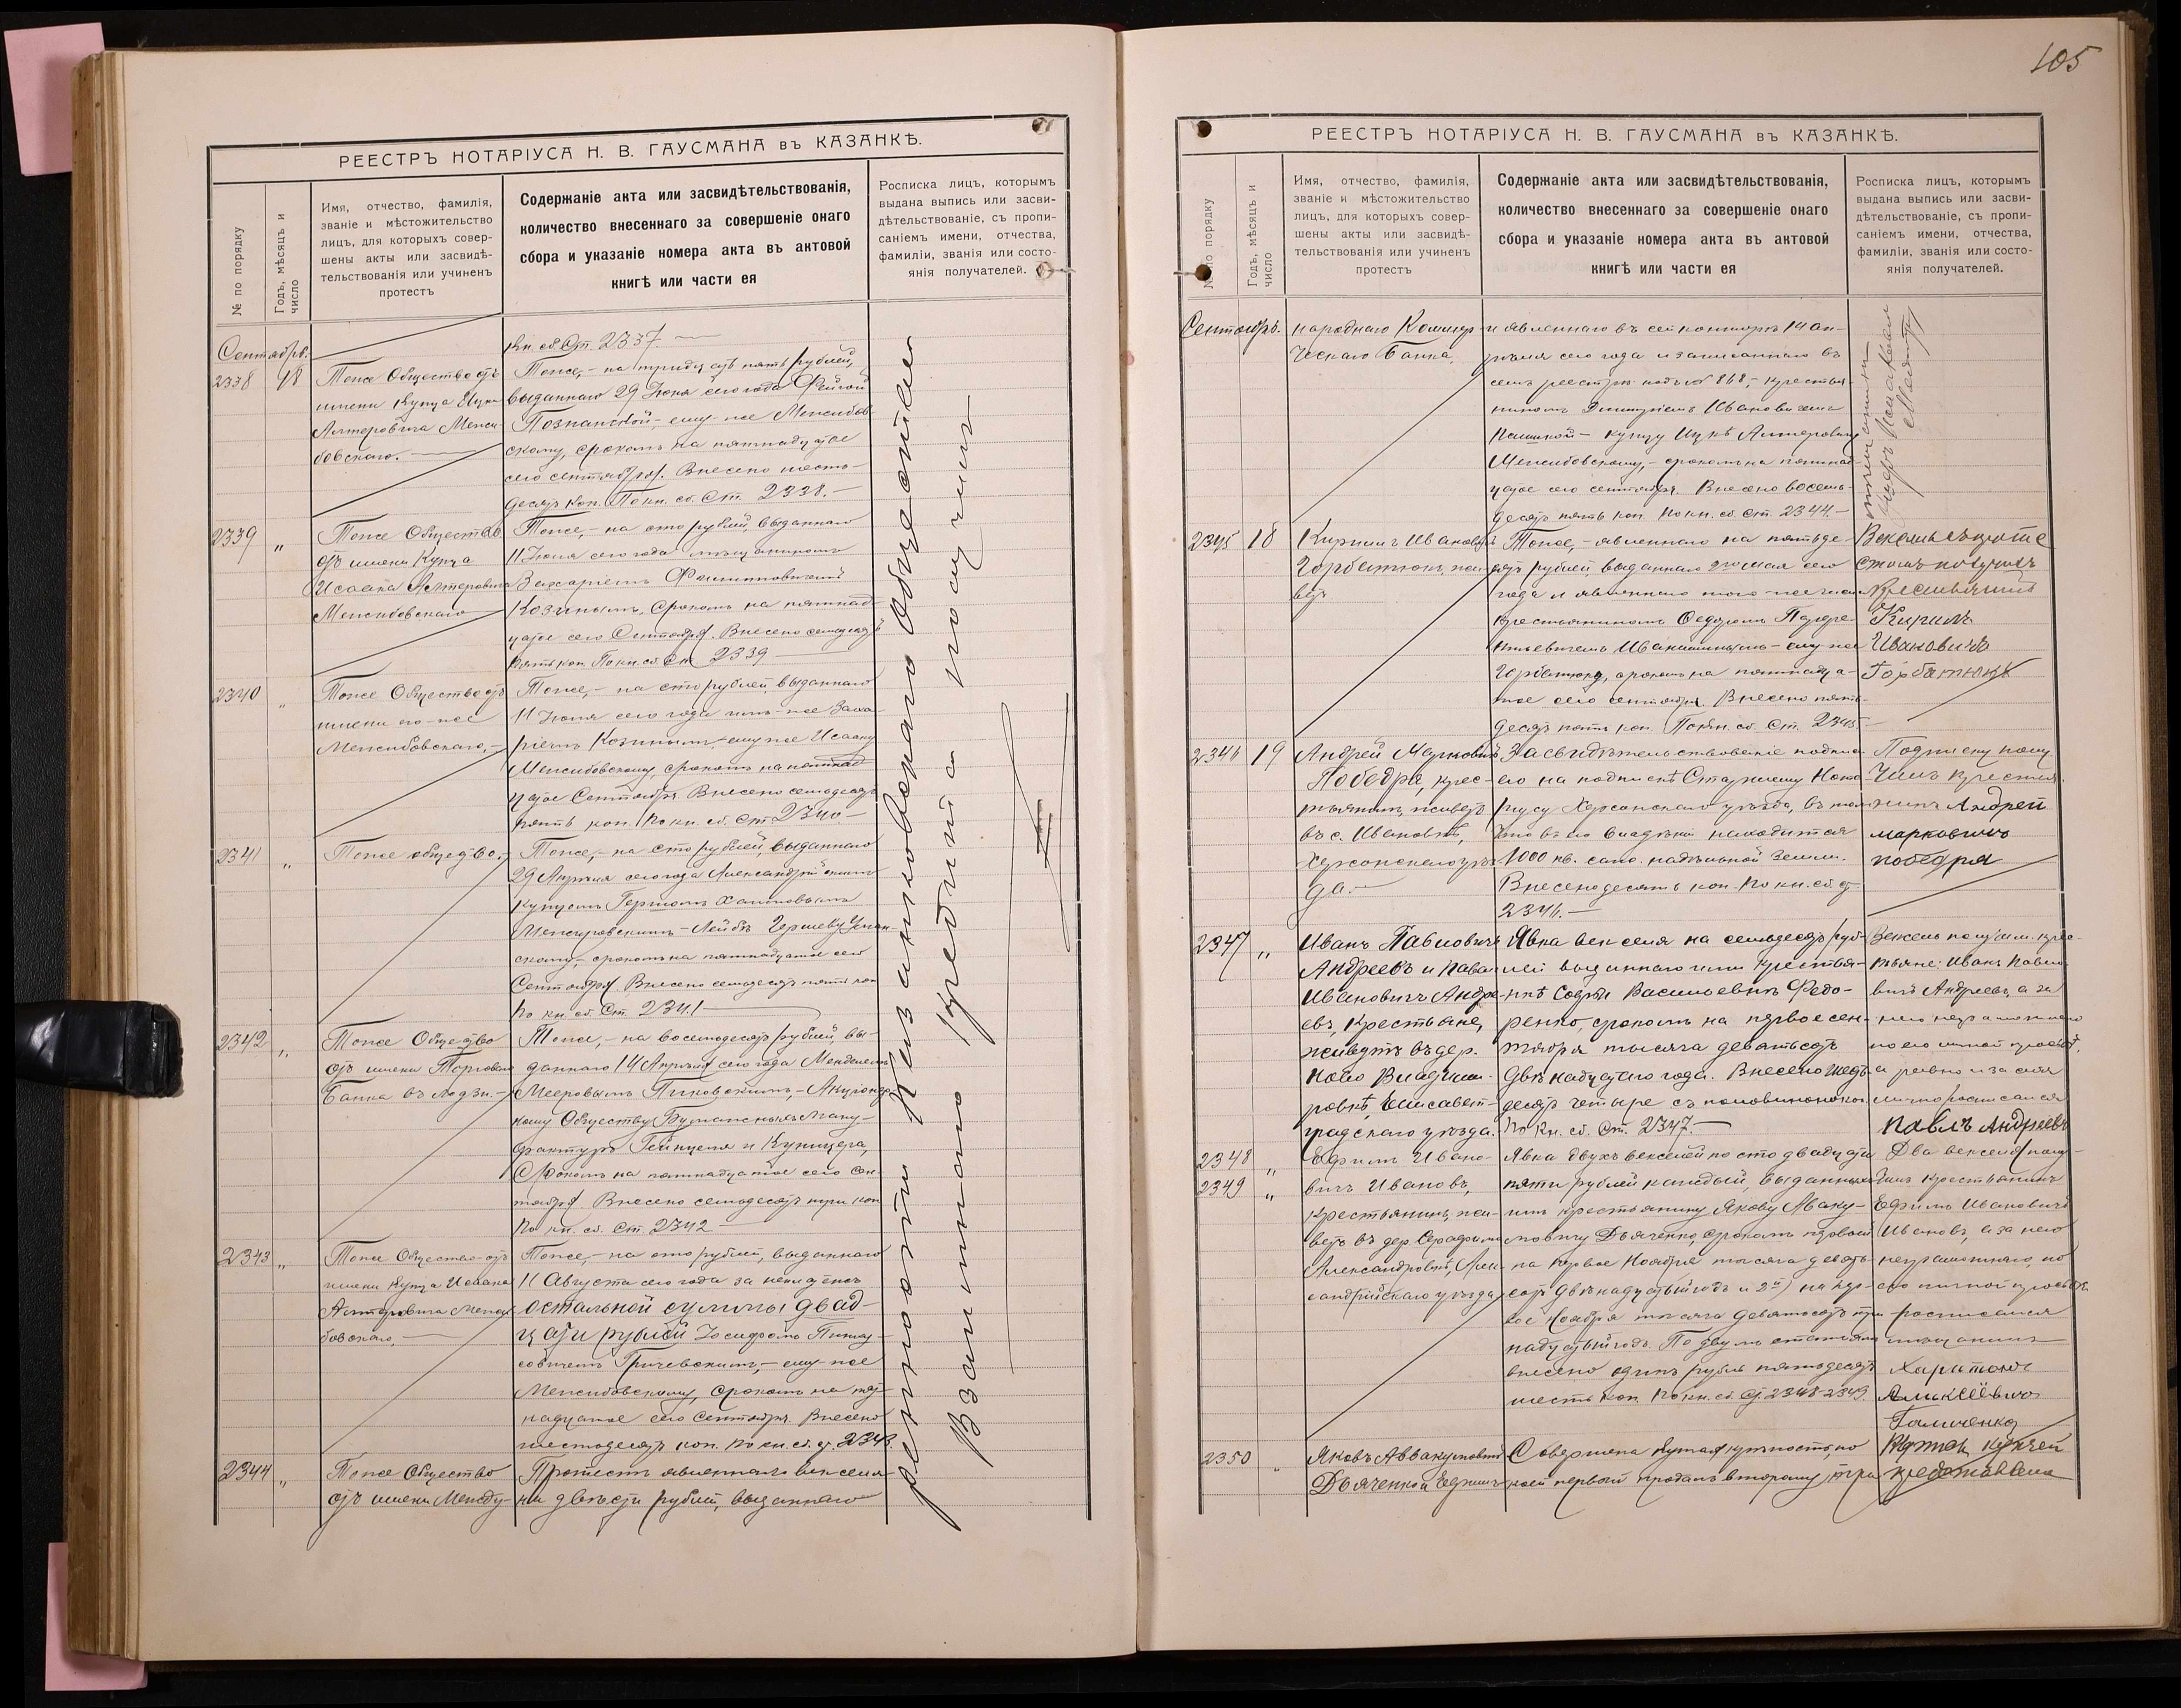 РЕЕСТРЪ НОТАРІУСА Н. В. ГАУСМАНА въ КАЗАНКѢ.
№ по порядку
Годъ, мѣсяцъ и
число
Имя, отчество, фамилія,
званіе и мѣстожительство
лицъ, для которыхъ совер-
шены акты или засвидѣ-
тельствованія или учиненъ
протестъ
Содержаніе акта или засвидѣтельствованія,
количество внесеннаго за совершеніе онаго
сбора и указаніе номера акта въ актовой
книгѣ или части ея
Росписка лицъ, которымъ
выдана выпись или засви-
дѣтельствованіе, съ пропи-
саніемъ имени, отчества,
фамиліи, званія или состо-
янія получателей.
Сентябрь.
кн. сб. Ст. 2337.
2338 18
Тоже Общество отъ
имени купца Ицки
Алтеровича Менжи-
бовскаго.
Тоже,- на тридцать пять рублей,
выданнаго 29 Іюня сего года Фейгой
Познанской,- ему-же Менжибов-
скому, срокомъ на пятнадцатое
сего сентября. Внесено шесть-
десятъ коп. По кн. сб. Ст. 2338.-
2339 "
Тоже Общество
отъ имени Купца
Исаака Алтеровича
Менжибовскаго
Тоже,- на сто рублей, выданнаго
11 Іюня сего года мѣщаниномъ
Захаріемъ
Козинымъ, срокомъ на пятнад-
цатое сего Сентября. Внесено семьдесятъ
пять коп. По кн. сб. Ст. 2339
2340 "
Тоже Общество отъ
имени его-же
Менжибовскаго,-
Тоже,- на сто рублей, выданнаго
11 Іюня сего года имъ-же Заха-
ріемъ Козинымъ ему же Исааку
Менжибовскому, срокомъ на пятнад-
цатое Сентября. Внесено семьдесятъ
пять коп. По кн. сб. Ст. 2340.-
2341 "
Тоже общество.-
Тоже,- на сто рублей, выданнаго
29 Апрѣля сего года Александрійскимъ
купцомъ Гершомъ Хаимовымъ
Менжеровскимъ - Лейбѣ Гершеву
скому,- срокомъ на пятнадцатое сего
Сентября. Внесено семьдесятъ пять коп
По кн. сб. Ст. 2341
2342 "
Тоже Общество
отъ имени Торговаго
Банка въ Лодзи.-
Тоже,- на восемьдесятъ рублей, вы-
даннаго 14 Апрѣля сего года Менделемъ
Мееровымъ Пиковскимъ,- Акціонер-
ному Обществу Бумажныхъ Ману-
фактуръ Гейнцеля и Куницера,
Срокомъ на пятнадцатое сего Сен-
тября. Внесено семьдесятъ три коп
По кн. сб. Ст. 2342
2343 "
Тоже Общество отъ
имени Купца Исаака
Алтеровича Менжи-
бовскаго,
Тоже,- на сто рублей, выданнаго
11 Августа сего года за неплатежъ
остальной суммы двад-
цати рублей Іосифомъ
Гричевскимъ,- ему-же
Менжибовскому, срокомъ на пят-
надцатое сего Сентября. Внесено
шестьдесятъ коп. По кн. сб. ст. 2343.
2344 "
Тоже Общество
отъ имени Между-
Протестъ явленнаго векселя
на двѣсти рублей, выданнаго
Казанковскаго Общества
Взаимнаго Кредита получилъ
105
РЕЕСТРЪ НОТАРІУСА Н. В. ГАУСМАНА въ КАЗАНКѢ.
№ по порядку
Годъ, мѣсяцъ и
число
Имя, отчество, фамилія,
званіе и мѣстожительство
лицъ, для которыхъ совер-
шены акты или засвидѣ-
тельствованія или учиненъ
протестъ
Содержаніе акта или засвидѣтельствованія,
количество внесеннаго за совершеніе онаго
сбора и указаніе номера акта въ актовой
книгѣ или части ея
Росписка лицъ, которымъ
выдана выпись или засви-
дѣтельствованіе, съ пропи-
саніемъ имени, отчества,
фамиліи, званія или состо-
янія получателей.
Сентябрь.
народнаго Коммер-
ческаго Банка,
и явленнаго въ сей конторѣ 14 ап-
рѣля сего года и записаннаго въ
семъ реестрѣ подъ № 868,- крестья-
ниномъ Димитріемъ Ивановичемъ
купцу Ицкѣ Алтеровичу
Менжибовскому,- срокомъ на пятнад-
цатое сего сентября. Внесено восемь-
десятъ пять коп. По кн. сб. Ст. 2344.-
2345 18
Кириллъ Ивановичъ
Горбатюкъ, жи-
ветъ
Тоже,- явленнаго на пятьде-
сятъ рублей, выданнаго 2го мая сего
года и явленнаго того-же числа
крестьяниномъ Федоромъ
Ивакинымъ - ему же
Горбатюку, срокомъ на пятнадца-
тое сего сентября. Внесено пять-
десятъ пять коп. По кн. сб. Ст. 2345
Вексель съ проте
стомъ получилъ
Крестьянинъ
Кирилъ
Ивановичъ
Горбатюкъ
2346 19
Андрей Марковичъ
Победря, крес-
тьянинъ, живетъ
въ с. Ивановкѣ,
Херсонскаго уѣз-
да.-
Засвидѣтельствованіе подписи
его на подпискѣ Старшему Нота-
ріусу Херсонскаго уѣзда, въ томъ
что въ его владѣніи находится
1000 кв. саж. надѣльной земли.
Внесено десять коп. По кн. сб. ст.
2346.-
Подписку полу
чилъ крестья-
нинъ Андрей
марковичъ
победря
2347 "
Иванъ Павловичъ
Андреевъ и Павелъ
Ивановичъ Андре-
евъ, Крестьяне,
живутъ въ дер.
Ново Владими-
ровкѣ, Елисавет-
градскаго уѣзда.
Явка векселя на семьдесятъ руб-
лей выданнаго ими крестьян-
кѣ Софьи Васильевнѣ Федо-
ренко, срокомъ на первое сен-
тября тысяча девятьсотъ
двѣнадцатаго года. Внесено шесть-
десятъ четыре съ половиною коп.
По кн. сб. Ст. 2347.-
Вексель получили крес-
тьяне: Иванъ Павло-
вичъ Андреевъ, а за
него неграмотнаго
по его личной просьбѣ,
а равно и за себя
лично росписался
Павлъ Андреевъ
2348 "
2349 "
Ефимъ Ивано-
вичъ Ивановъ,
Крестьянинъ, жи-
ветъ въ дер. Серафимо
Александровкѣ, Алек-
сандрійскаго уѣзда
Явка двухъ векселей по сто двадцати
пяти рублей каждый, выданныхъ
имъ крестьянину Якову Аваку-
мовичу Дьяченко, срокомъ первый
на первое Ноября тысяча девять-
сотъ двѣнадцатый годъ и 2й) на пер-
вое Ноября тысяча девятьсотъ три-
надцатый годъ. По двумъ статьямъ
внесено одинъ рубль пятьдесятъ
шесть коп. По кн. сб. ст. 2348-2349.
Два векселя полу-
чилъ Крестьянинъ
Ефимъ Ивановичъ
Ивановъ, а за него
неграмотнаго, по
его личной просьбѣ
росписался
мѣщанинъ
Харитонъ
Алексѣевичъ
Галиченко
2350 "
Яковъ Аввакумовичъ
Дьяченко и Ефимъ
Совершена купчая крѣпость, по
коей первый продалъ второму три